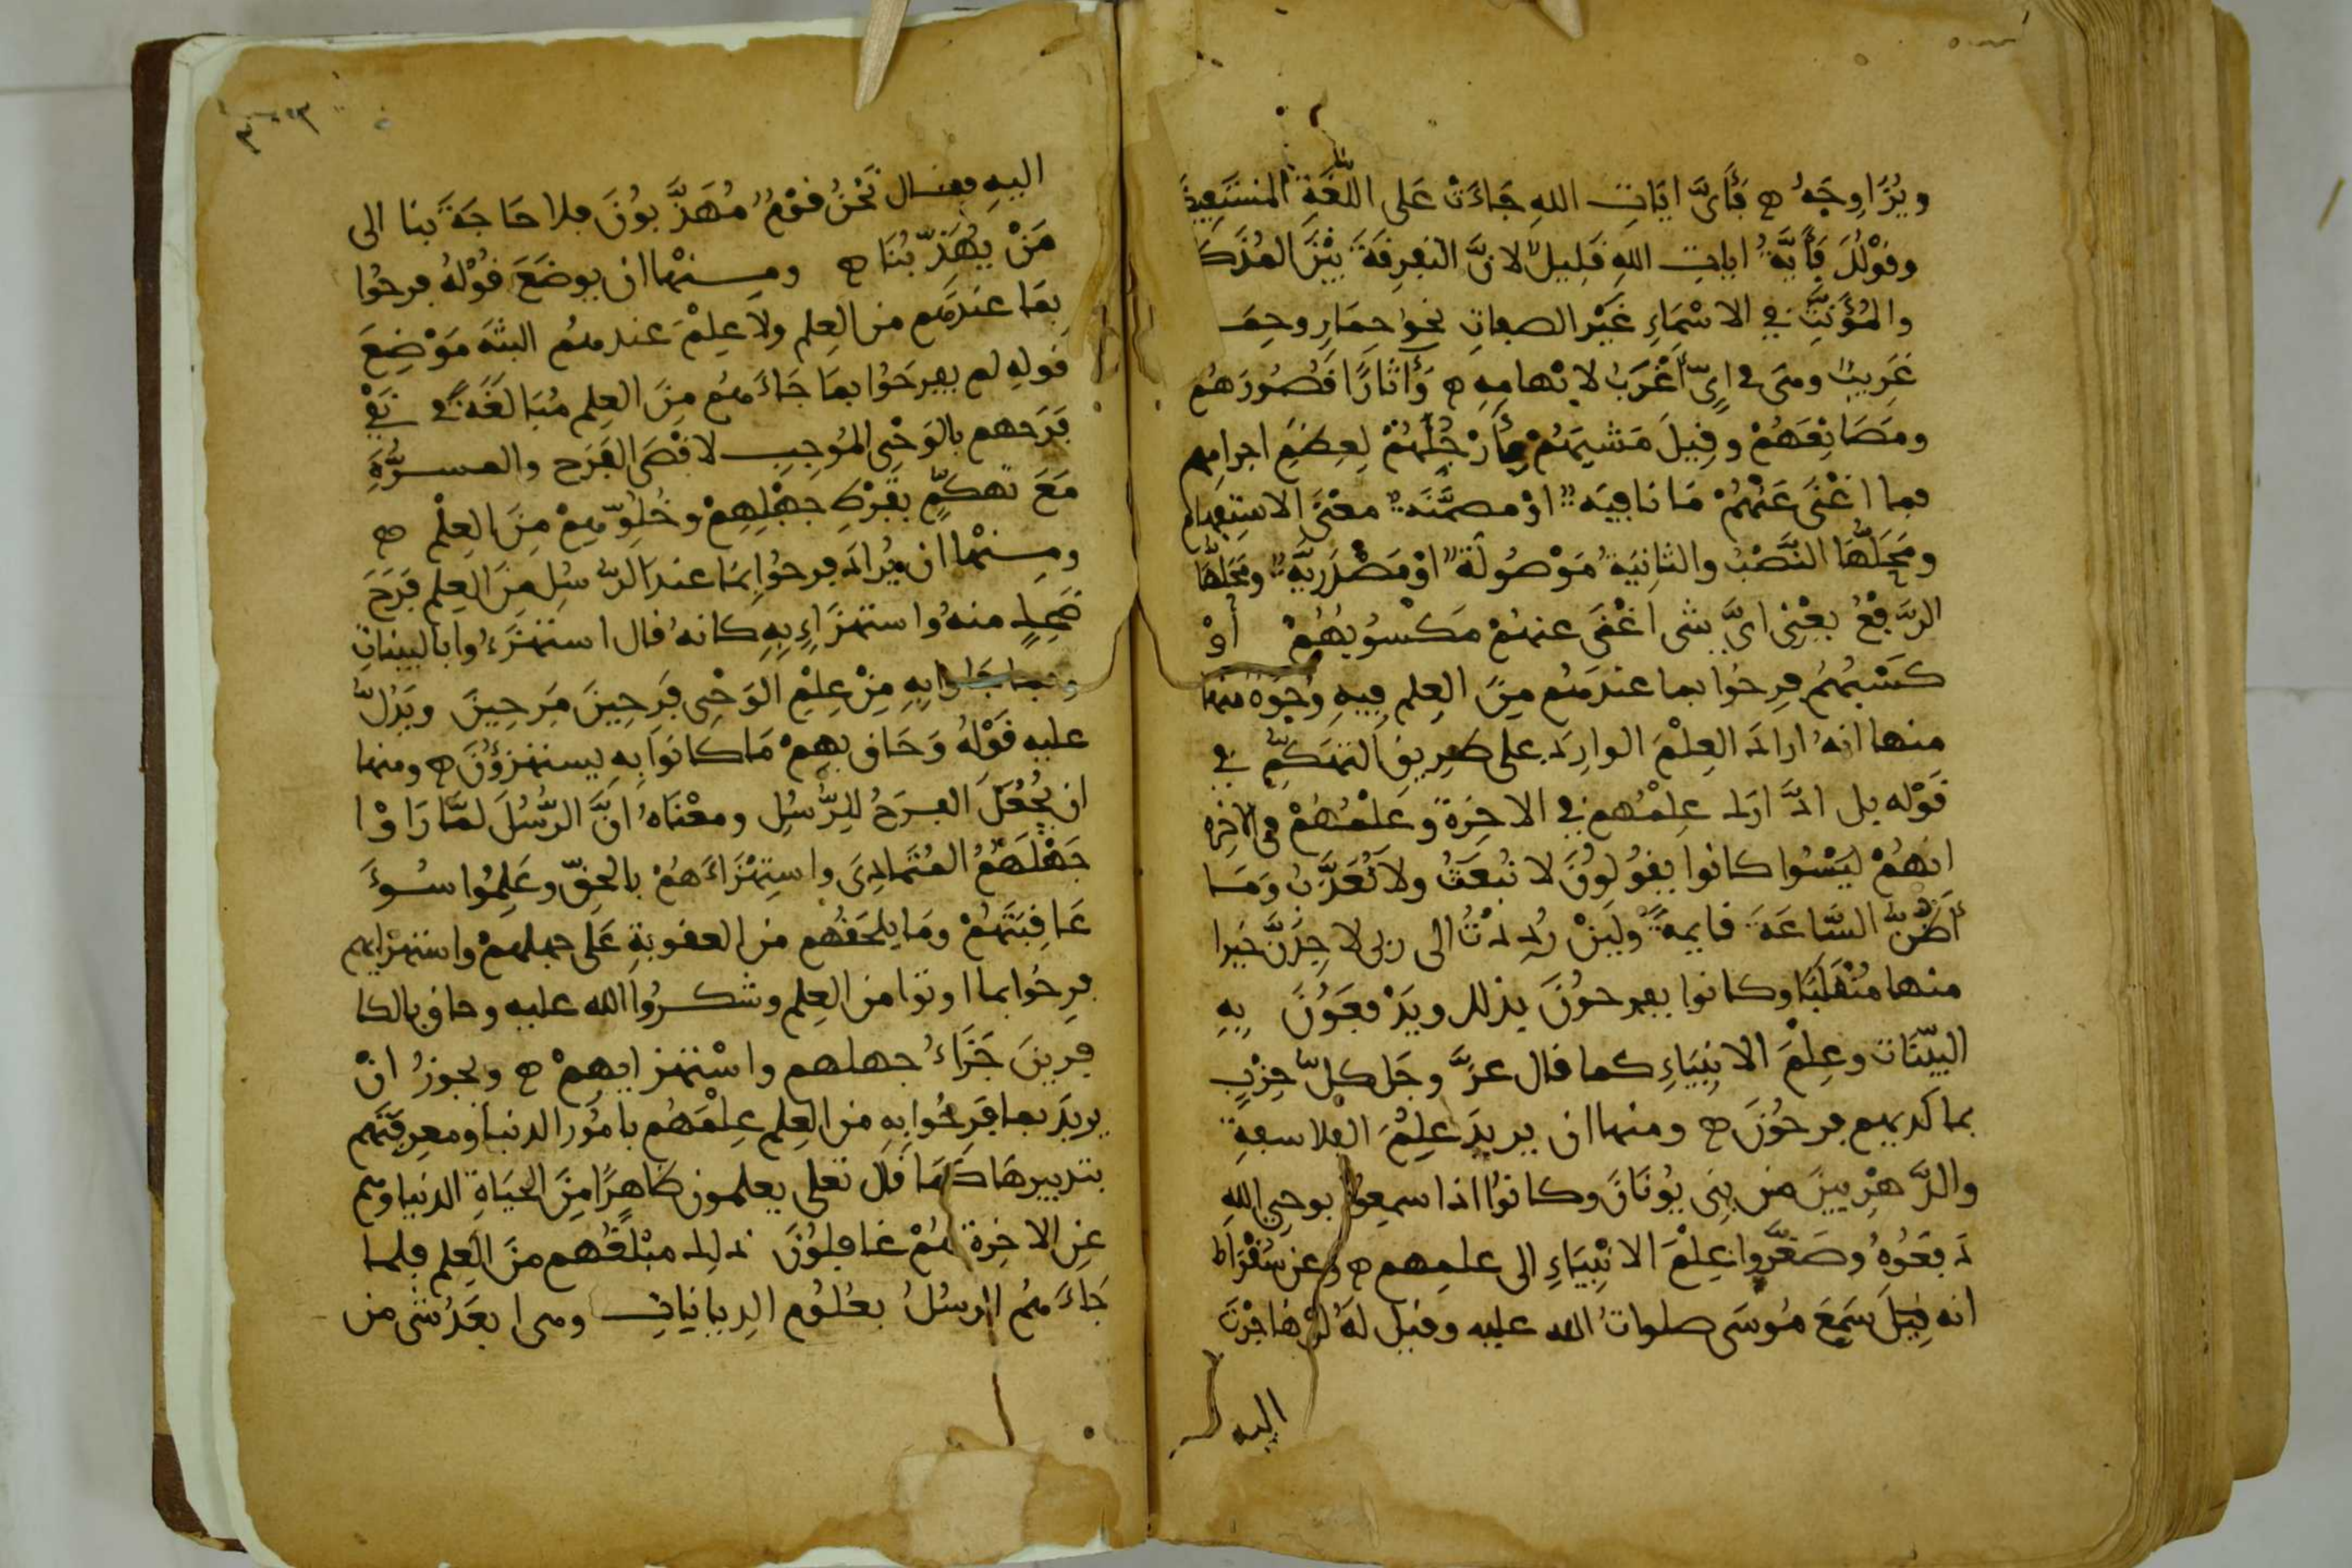 ويُزَاوِجَهُ ه فَأَىَّ ايَاتِ اللهِ جَاءَتْ عَلى اللُّغَةِ المُسْتَفِيضَة
وقوْلُكَ فَأَيَّةُ ايات اللهِ قَلِيلٌ لانَّ التفرِقَةَ بَيْنَ المُذَكَّ
والمُؤَنَّثِ في الاسْمَاءِ غَيْرِ الصفاتِ نحو حِمَارٍ وحِمَـ
غَرِيبٌ وهى في اىٍّ أغْرَبُ لابْهامِهِ ه وَأَثَارًا قُصُورَهُم
ومَصَانِعَهُمْ وقِيلَ مَشْيَهُمْ بِأَرْجُلِهُمْ لِعِظَمِ اجرامِهم
فما اغْنَى عَنْهُمْ مَا نافِيَه اوْ مضمَّنَة معْنَى الاستِفهام
ومَحَلُّهَا النَّصْبُ والثانِيَةُ مَوْصُولَة اوْ مَصْدَرِيَّة ومَحَلُّهَا
الرَّفْعُ يعْنِى اىَّ شى اغْنَى عنهُمْ مَكْسُوبُهُمْ أوْ
كَسْبُهُم فرِحُوا بما عندهُم مِنَ العِلم فِيهِ وُجُوهٌ منها
منها انهُ ارادَ العِلْمَ الوارِدَ على طرِيقِ التهَكُّمِ في
قَوْله بل ادَّارَكَ عِلْمُهم في الاخِرَةِ وَعِلْمُهُمْ في الاخِرَه
انهُمْ كانوا يقولونَ لا نُبعَثُ ولا نُعَذَّبُ وَمَا
أَظُنُّ السَّاعَةَ قايمةً ولَئِنْ رُدِدْتُ الى ربى لاجِدَنَّ خَيرا
منها مُنْقَلَبًا وكانوا يفرحُونَ بذلك ويَدْفَعُونَ بِهِ
البيّنَات وعِلْمَ الانبِيَاءِ كما قال عزَّ وجَل كلّ حِزْبٍ
بما لديهم فرحُونَ ه ومنها ان يريدَ عِلْمَ الفلاسفةِ
والدَّهْرِيينَ من بنِى يُونَانَ وكانوا اذا سمِعُوا بوحىِ اللهِ
دَفعُوهُ وصَغَّروا عِلْمَ الانْبِيَاءِ الى علمِهم ه وعن سُقْرَاط
انه قِيلَ سَمِعَ مُوسَى صلواتُ الله عليه وقيل لهُ لوْ هَاجَرْتَ
اليه
اليهِ فقال نَحْنُ قَوْمٌ مُهَذَّبونَ فلا حَاجَةَ بنا الى
مَنْ يُهَذِّبُنَا ه ومنها ان يوضَعَ قوْلهُ فرحُوا
بما عندهُم من العِلم ولا عِلْمَ عندهمُ البتةَ مَوْضِعَ
قولهِ لم يفرحُوا بمَا جَاءَهُم مِنَ العِلم مُبَالَغَةً في نَفْىِ
فَرَحهم بالوَحْىِ المُوجِبِ لاقْصَى الفَرَحِ والمسرَّةِ
مَعَ تَهكُّمٍ بفَرْطِ جهْلِهِمْ وخُلُوِّهِمْ مِنَ العِلْم ه
ومِنها ان يُرادَ فرحُوا بما عندَ الرُّسُلِ مِنَ العِلم فَرَحَ
ضَحِكٍ منهُ واستهزَاءٍ بِهِ كانهُ قال استهْزَءُوا بالبينَاتِ
وبما جَاءوا بِهِ مِنْ عِلْمِ الوَحْىِ فَرِحِينَ مَرِحِينَ ويَدُلُّ
عليه قَوْلُهُ وَحَاق بهِمْ مَا كانوا بِهِ يستهزؤُنَ ه ومنها
ان يُجْعَلَ الفرَحُ للِرُّسُلِ ومعْنَاهُ انَّ الرُّسُلَ لمَّا رَاوْا
جَهْلَهُمُ المُتَمَادِىَ واستِهْزَاءَهُمْ بالحَقّ وعَلِمُوا سُوءَ
عَاقِبَتَهُمْ ومَا يلحَقُهُم من العقوبةِ عَلى جهلهمْ واستهْزايهم
فرِحُوا بما اوتوا من العِلم وشكرُوا الله عليه وحاق بالكا
فرينَ جَزَاءُ جهلهم واسْتهزايهِمْ ه ويجوزُ انْ
يريدَ بما فَرِحُوا بهِ من العِلم عِلْمَهُم بامُور الدنيا ومعرِفتَهم
بتدبيرهَا كَمَا قَال تعلى يعلمون ظاهِرًا مِنَ الحَيَاةِ الدنيا وهم
عنِ الاخِرَةِ هُمْ غافلونَ ذلِك مبْلَغُهم منَ العِلم فلما
جَاءَهُم الرسُلُ بعُلوُم الدِيانَاتِ وهى ابعَدُ شى من